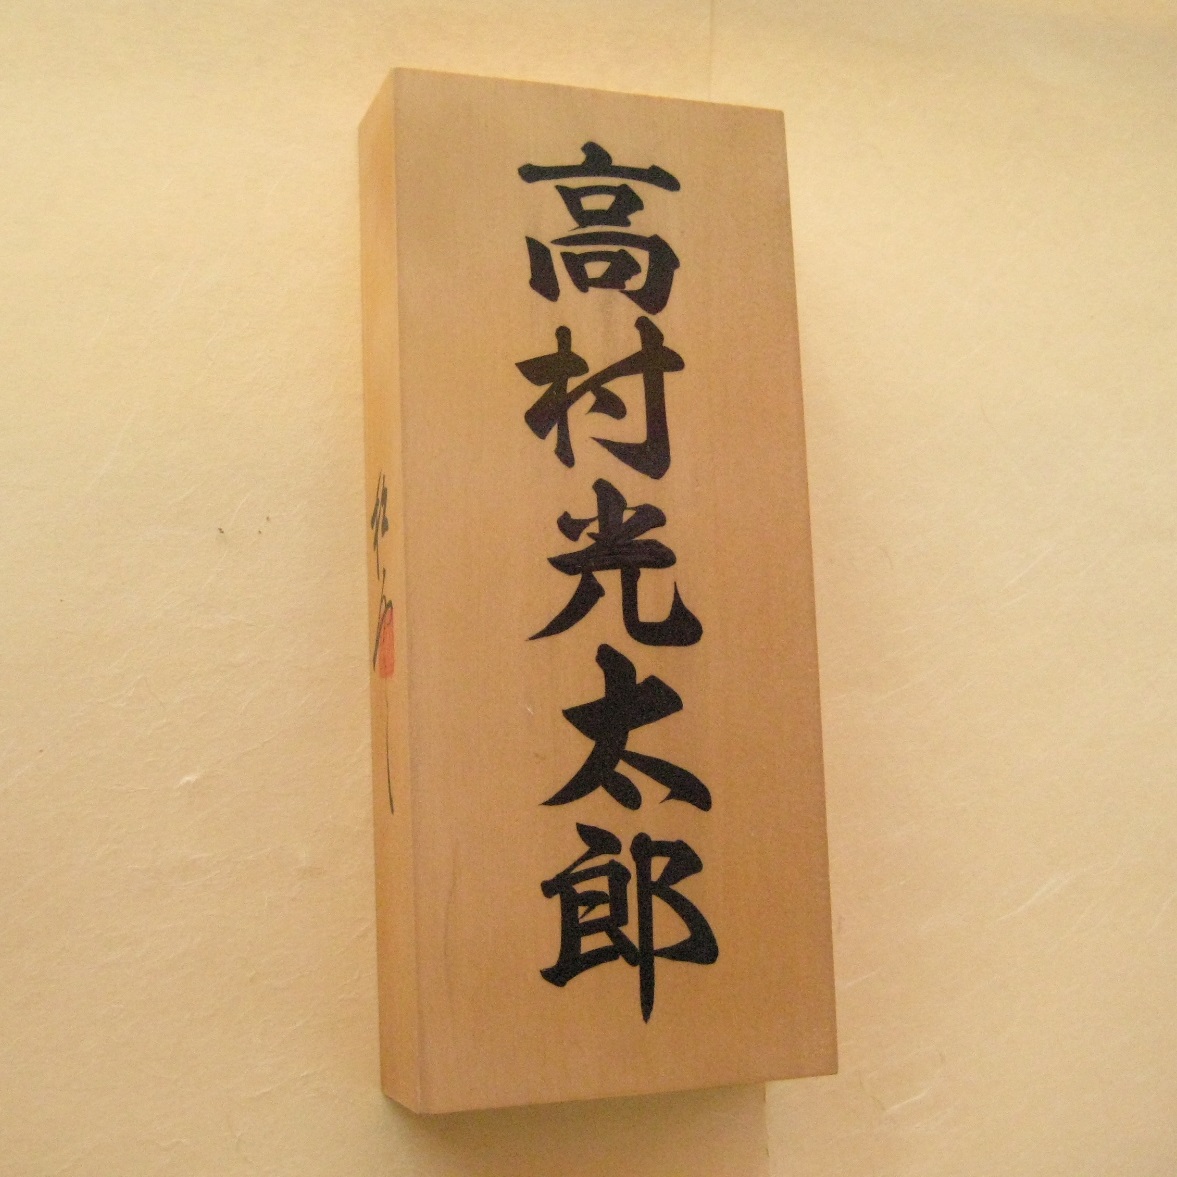 高村光太郎